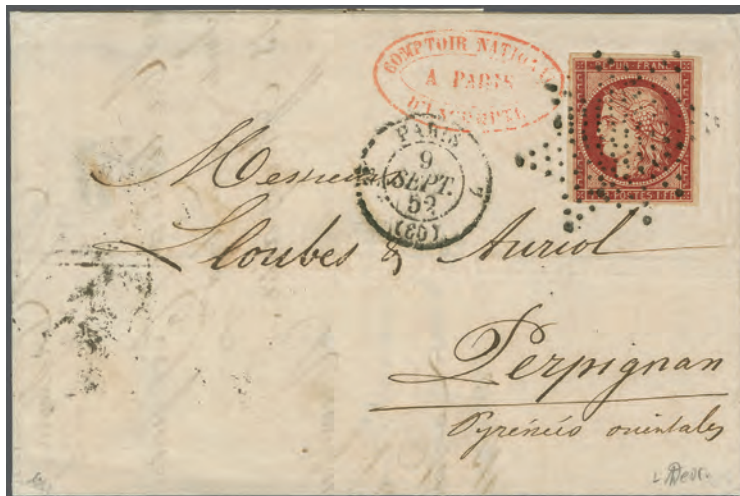 COMPTOIR NATIONAL
A PARIS
D'ESCOMPTE
REPUB. FRANC.
PARIS
9
SEPT.
52
(60)
Messieurs
Lloubes & Auriol
Perpignan
Pyrénées orientales